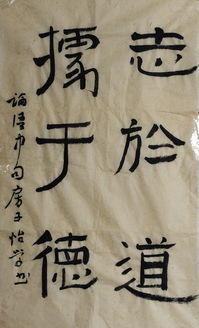 志於道
據于德
論語中句房子怡学书